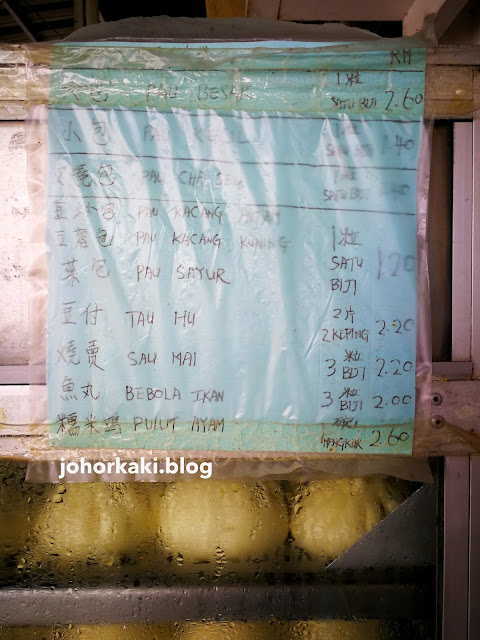 RM
大包 PAU BESAR 1粒 SATU BIJI 2.60
小包 PAU KECIL 1粒 SATU BIJI .40
叉燒包 PAU CHA SEW 1粒 SATU BIJI
豆沙包 PAU KACANG HITAM
豆蓉包 PAU KACANG KUNING 1粒
菜包 PAU SAYUR SATU BIJI 1.20
豆付 TAU HU 2片 2 KEPING 2.20
燒賣 SAU MAI 3粒 BIJI 2.20
魚丸 BEBOLA IKAN 3粒 BIJI 2.00
糯米雞 PULUT AYAM 1 MANGKUK 2.60
johorkaki.blog